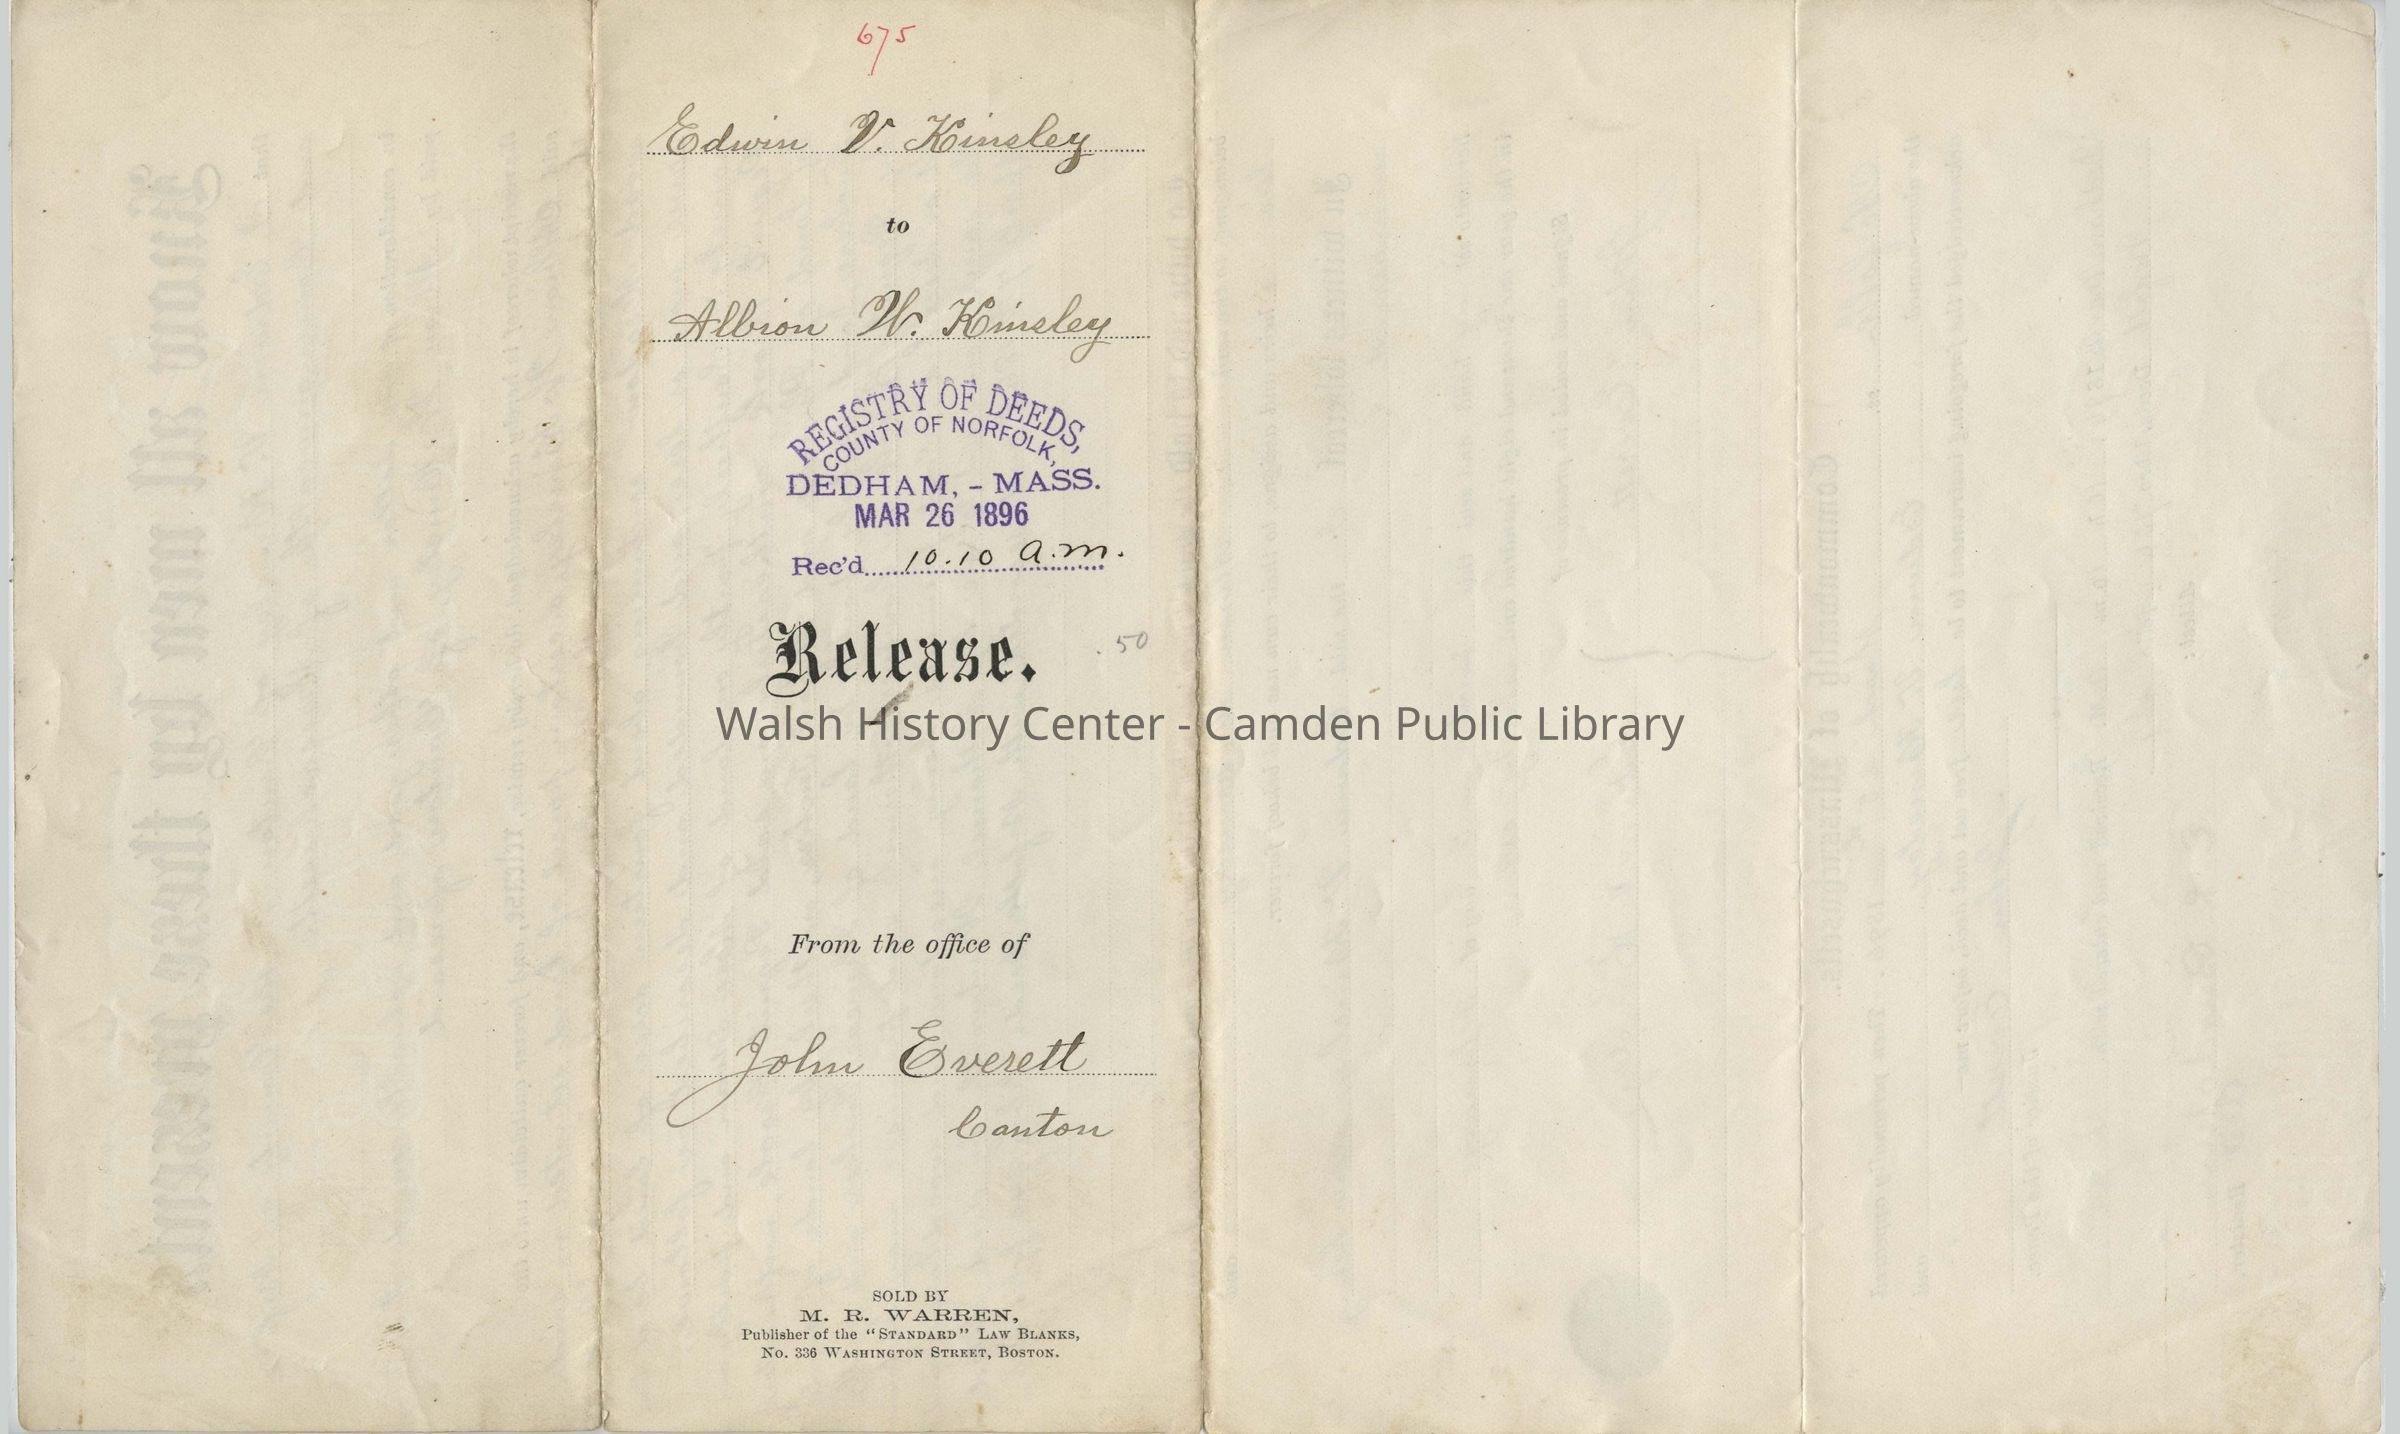 675
Edwin V. Kinsley
to
Albion W. Kinsley
REGISTRY OF DEEDS,
COUNTY OF NORFOLK,
DEDHAM, - MASS.
MAR 26 1896
Rec'd 10.10 a.m.
Release.
.50
Walsh History Center - Camden Public Library
From the office of
John Everett
Canton
SOLD BY
M. R. WARREN,
Publisher of the "STANDARD" LAW BLANKS,
No. 336 WASHINGTON STREET, BOSTON.